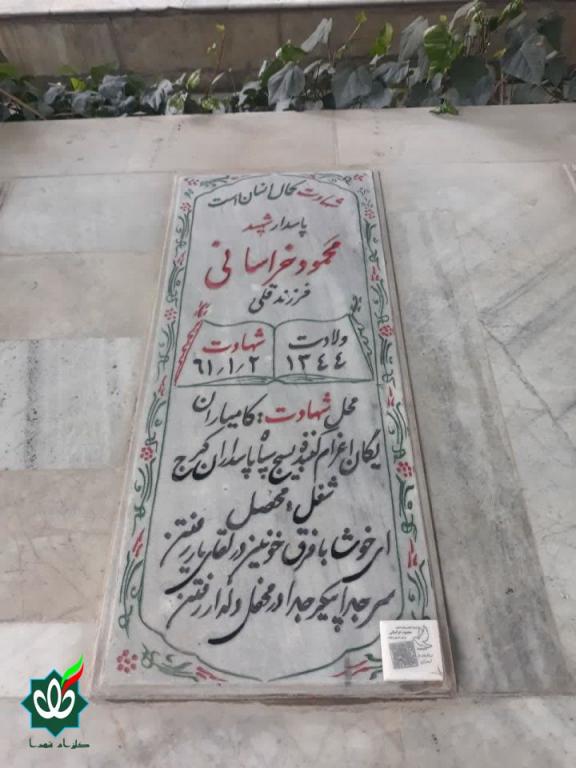 شهادت کمال انسان است
پاسدار شهید
محمود خراسانی
فرزند قلی
ولادت
۱۳۴۴
شهادت
۶۱/۱/۲
محل شهادت: کامیاران
یگان اعزام کننده بسیج سپاه پاسداران کرج
شغل: محصل
ای خوشا با فرق خونین در لقای یار رفتن
سر جدا پیکر جدا در محفل دلدار رفتن
گلزار شهدا